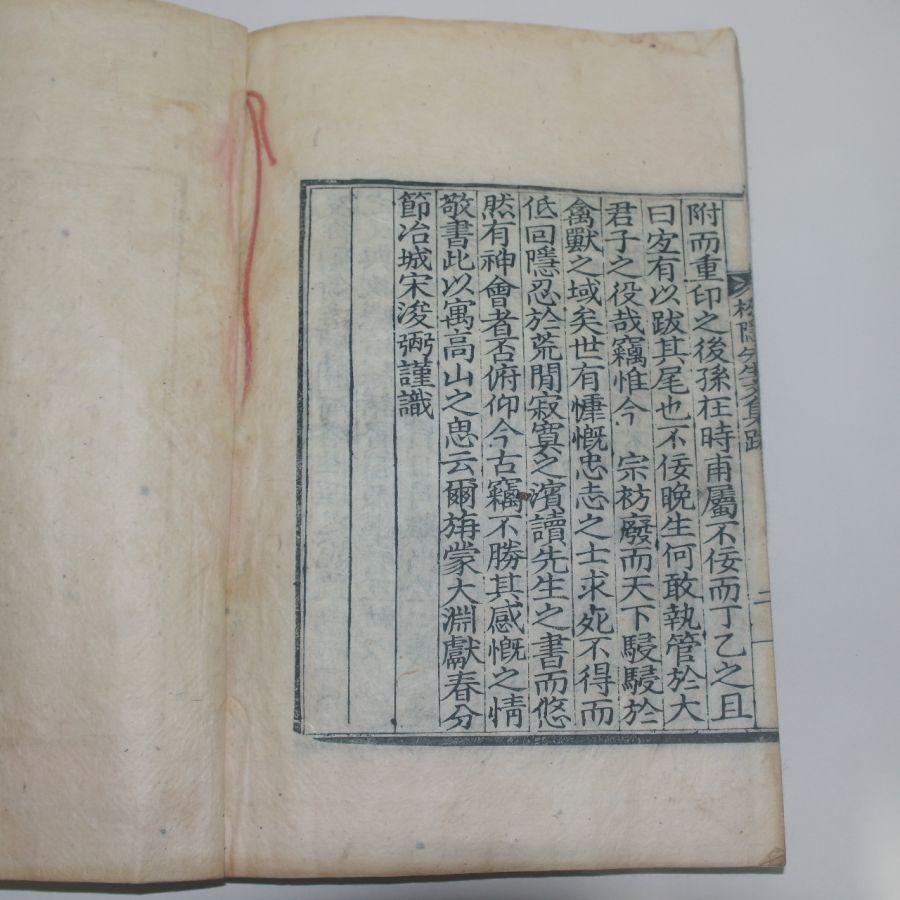 附而重印之後孫在時甫屬不佞而丁乙之且
曰宐有以跋其尾也不佞晚生何敢執管於大
君子之役哉竊惟今 宗祊廢而天下駸駸於
禽獸之域矣世有慷慨忠志之士求死不得而
低回隱忍於荒閒寂寞之濱讀先生之書而悠
然有神會者否俯仰今古竊不勝其感慨之情
敬書此以寓高山之思云爾旃蒙大淵獻春分
節冶城宋浚弼謹識
松隱先生文集跋 二